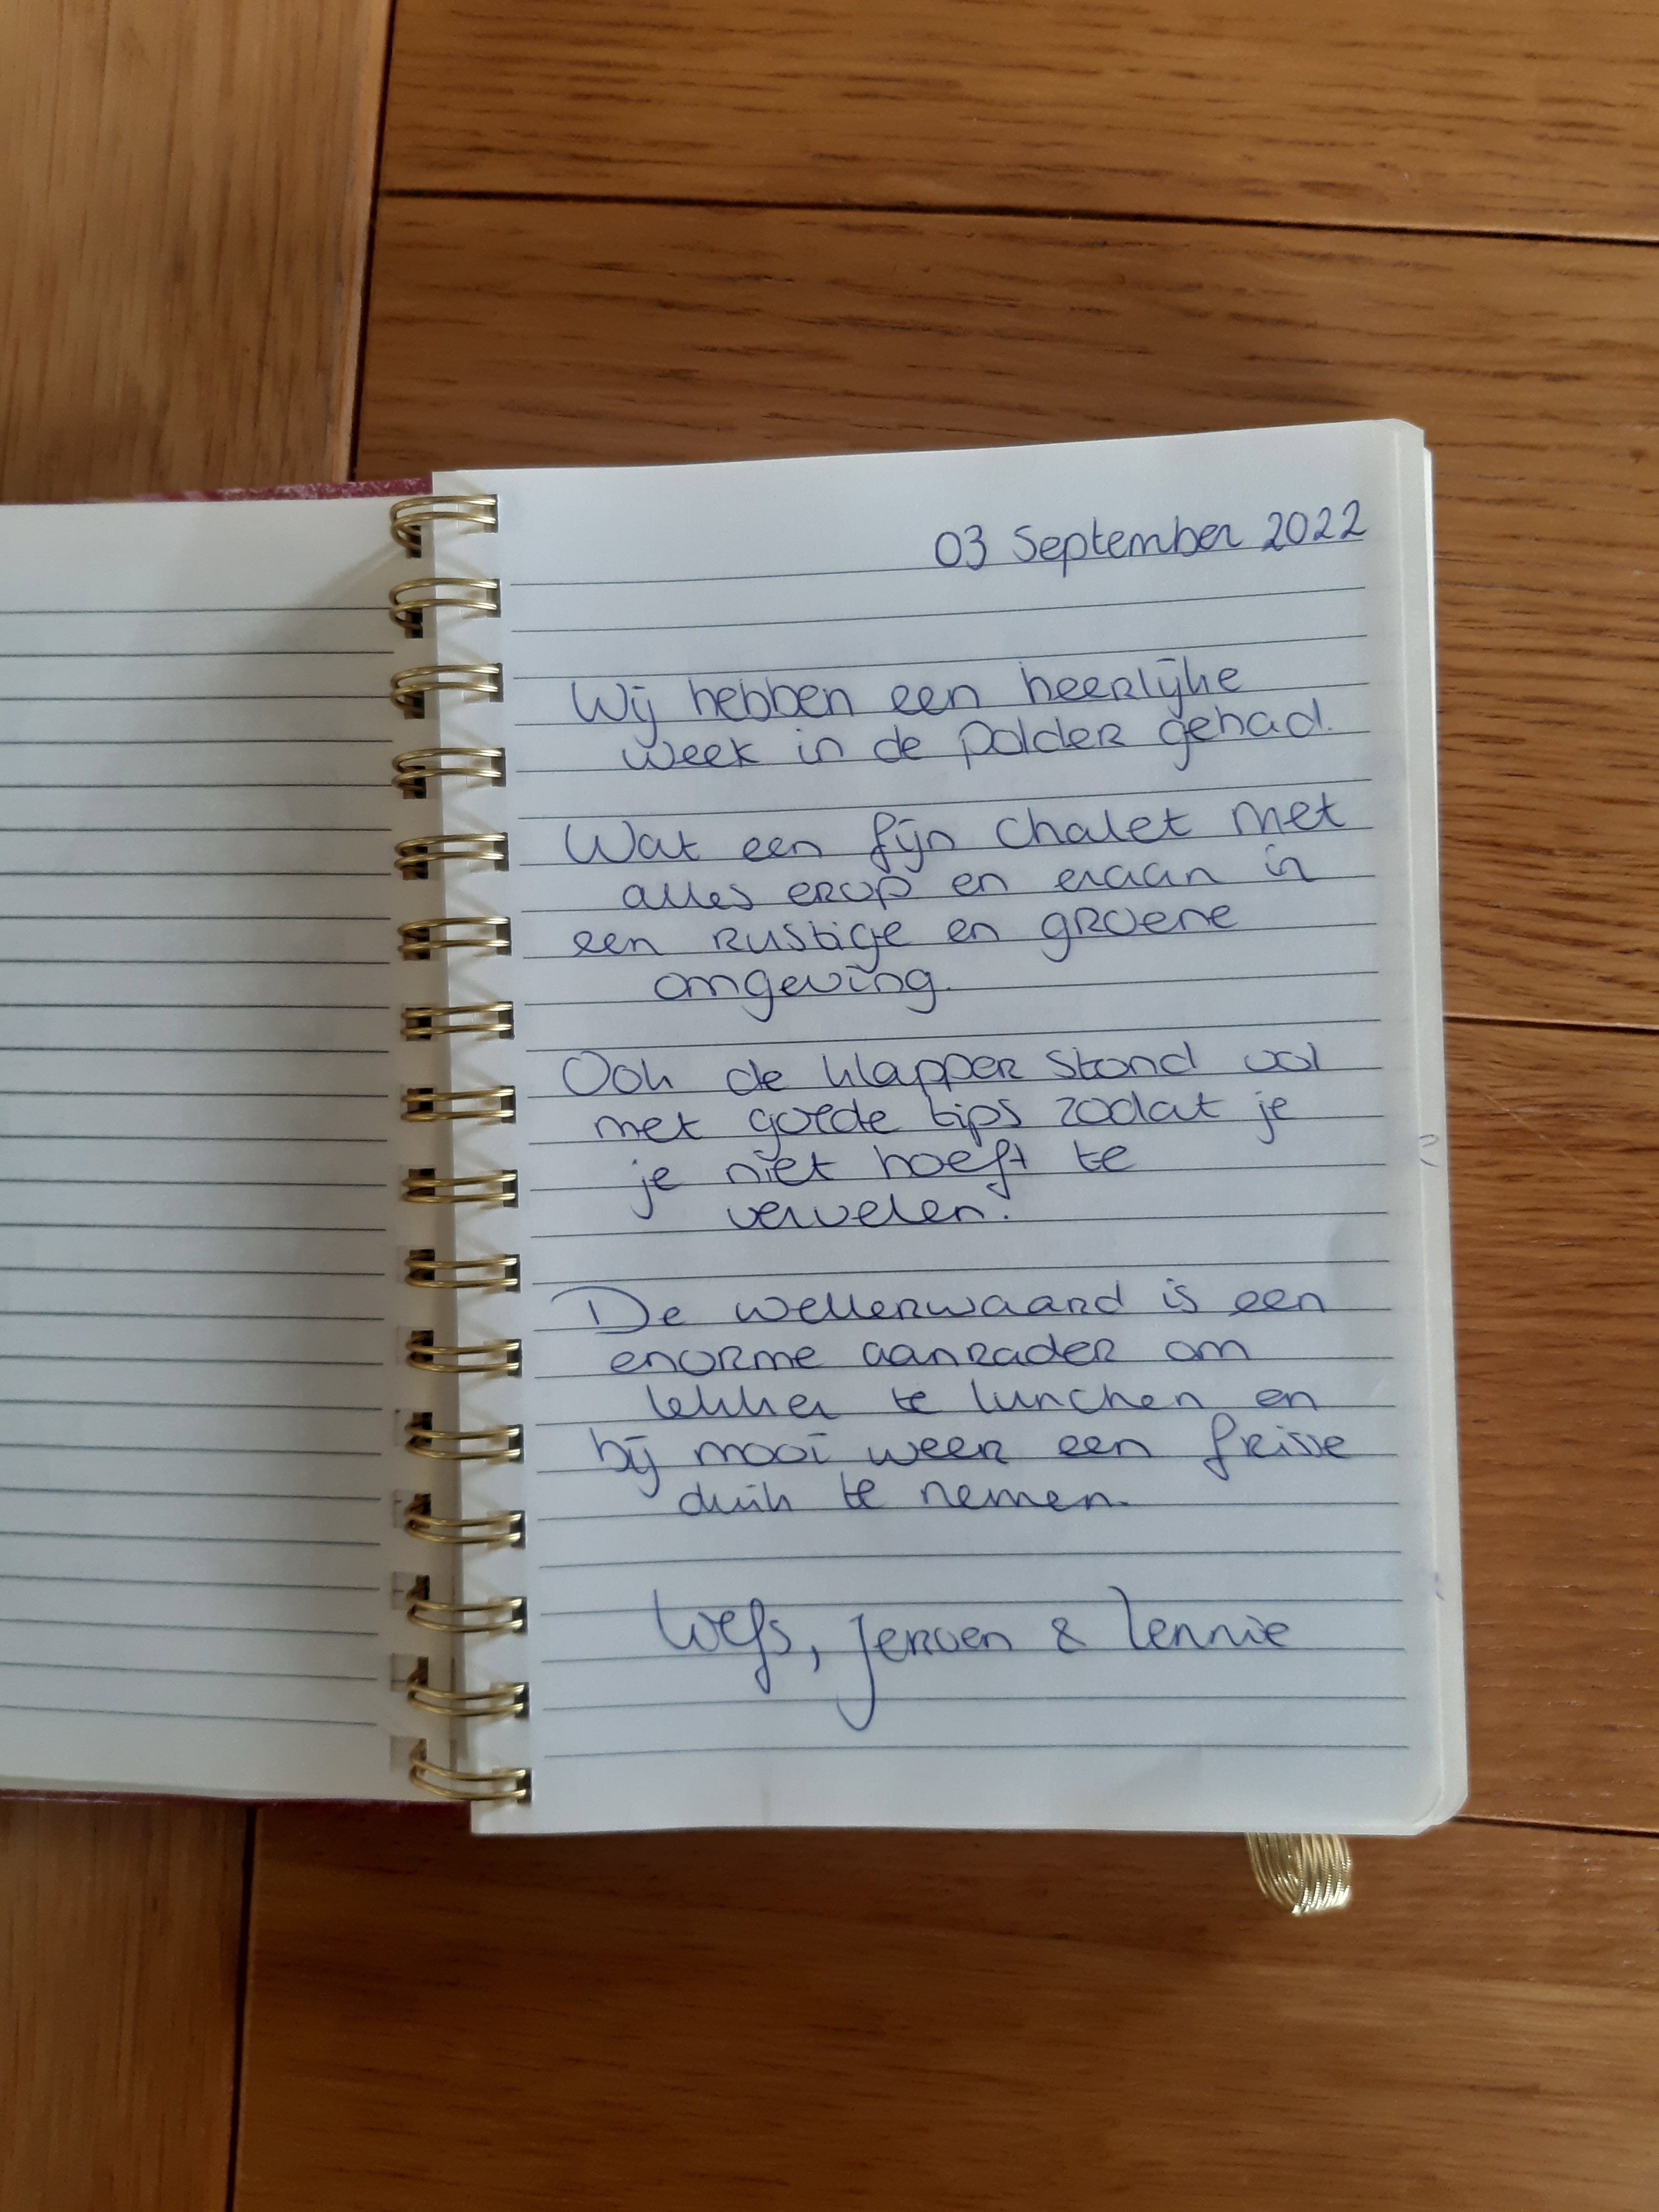 03 September 2022
Wij hebben een heerlijke
week in de polder gehad.
Wat een fijn chalet met
alles erop en eraan in
een rustige en groene
omgeving.
Ook de klapper stond vol
met goede tips zodat je
je niet hoeft te
vervelen.
De wellerwaard is een
enorme aanrader om
lekker te lunchen en
bij mooi weer een frisse
duik te nemen.
Liefs, Jeroen & Lennie